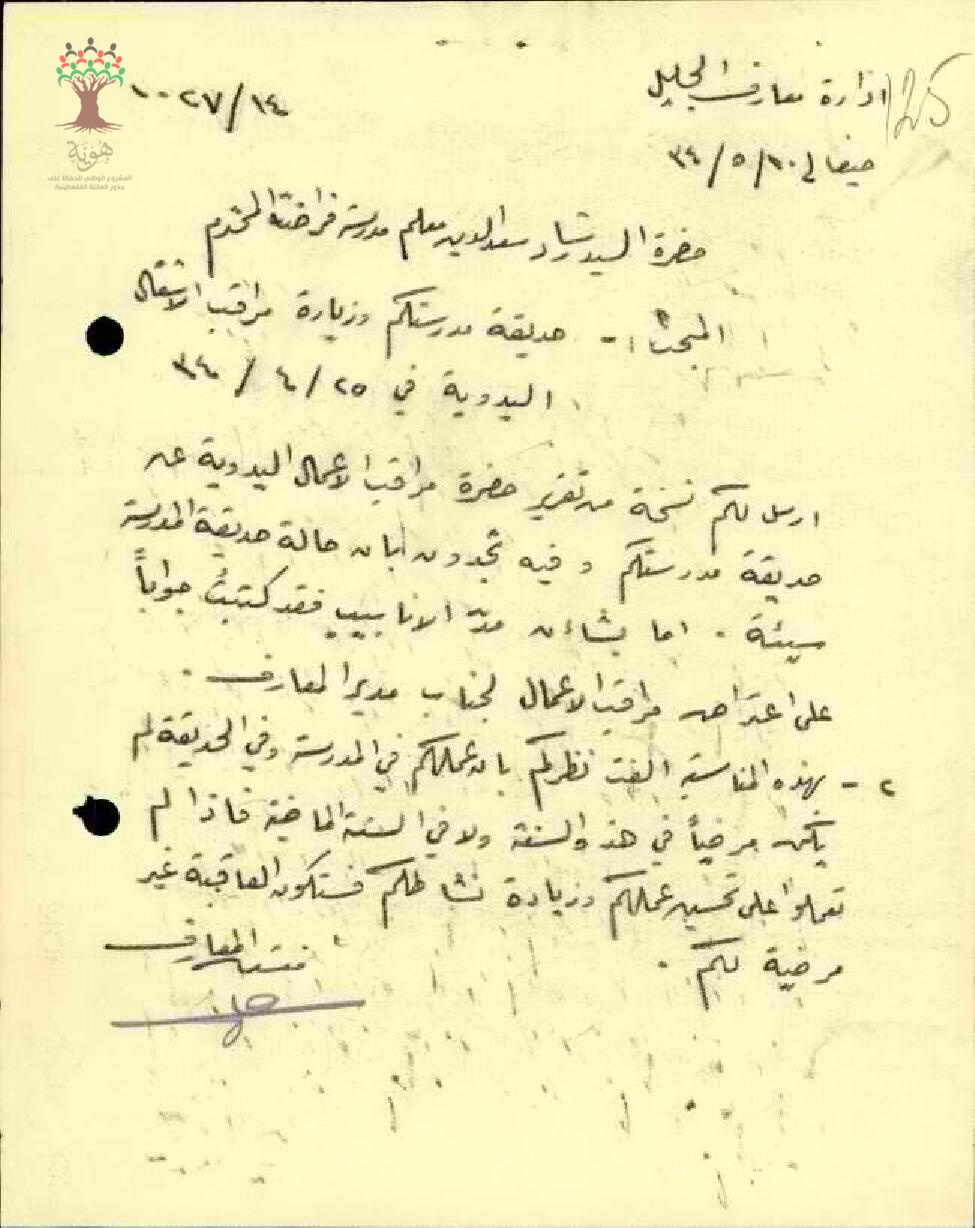 ادارة معارف الجليل
125
١٠٢٧/١٤
حيفا في ١٠/٥/٣٤
هُويّة
المشروع الوطني للحفاظ على
جذور العائلة الفلسطينية
حضرة السيد رشاد سعد الدين معلم مدرسة فراضة المحترم
المبحث :- حديقة مدرستكم وزيارة مراقب الاشغال
اليدوية في ٢٥/٤/٣٤
ارسل لكم نسخة من تقرير حضرة مراقب الاعمال اليدوية عن
حديقة مدرستكم وفيه تجدون ان حالة حديقة المدرسة
سيئة . اما بشان مدّ الانابيب فقد كتبتُ جواباً
على اعتراض مراقب الاعمال لجناب مدير المعارف .
٢ - بهذه المناسبة الفت نظركم بان عملكم في المدرسة وفي الحديقة لم
يكن مرضياً في هذه السنة ولا في السنة الماضية فاذا لم
تعملوا على تحسين عملكم وزيادة نشاطكم فستكون العاقبة غير
مرضية لكم .
مفتش المعارف